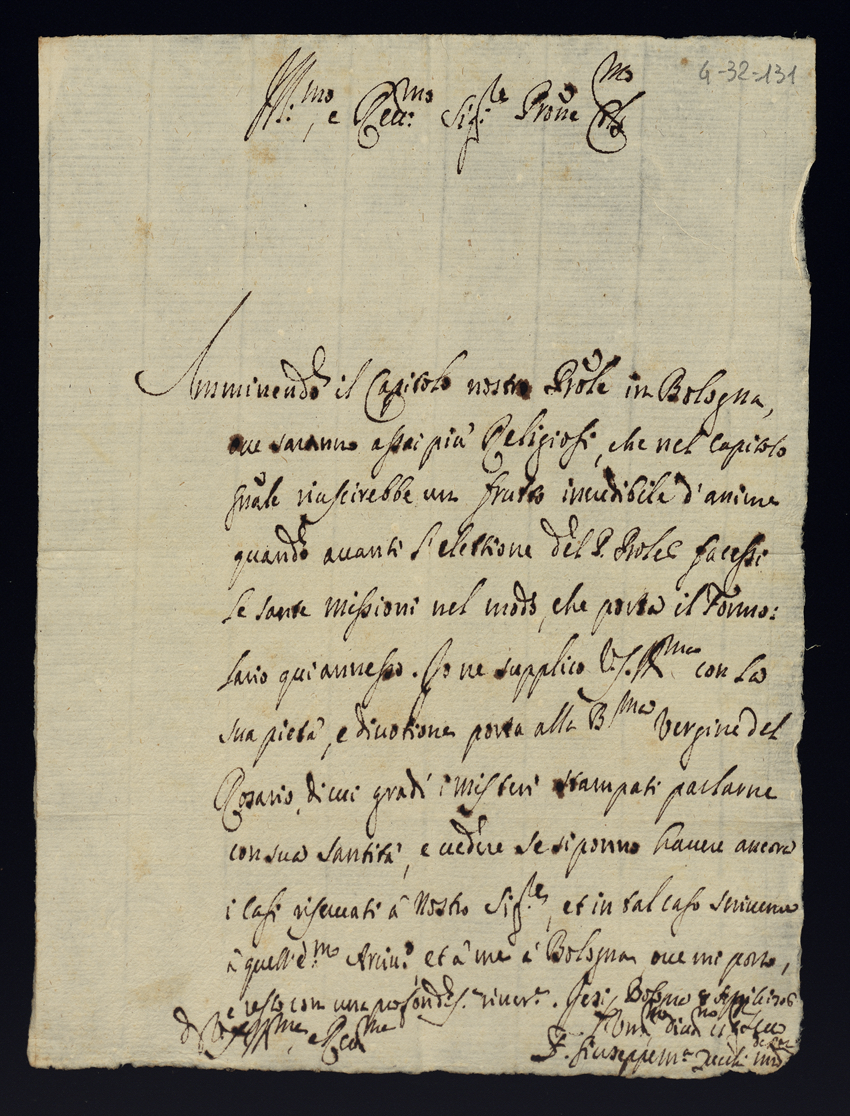 4-32-131
Ill.mo, e Reu.mo Sig.re Prone
Amminendo il Capitolo nostro Prole in Bologna,
oue saranno assai più Religiosi, che nel Capitolo
gñale riuscirebbe un frutto incredibile d'anime
quando auanti l'elettione del P. Prole facessi
le sante missioni nel modo, che porta il Formo:
lario qui annesso. Io ne supplico V.S. Ill.ma con la
sua pietà, e diuotione porta alla B.ma Vergine del
Rosario, di cui gradì i misteri stampati parlarne
con sua santità, e uedere se si ponno hauere ancora
i casi riseruati à Nostro Sig.re, et in tal caso scriuerne
à quell'E.mo Arciu., et à me à Bologna oue mi porto,
e resto con una profond.s. riuer.a. Jesi
di V.S. Ill.ma, e Reu.ma
F. Giuseppe M.a